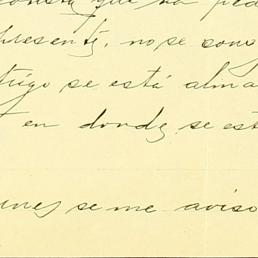 que no ped
presente, no se cons
trigo se está alma
en donde se est
unes se me aviso